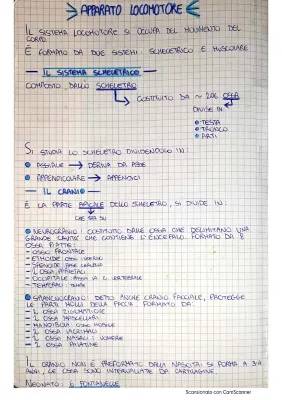 APPARATO LOCOMOTORE
IL SISTEMA LOCOMOTORE SI OCCUPA DEL MOVIMENTO DEL
CORPO
È FORMATO DA DUE SISTEMI: SCHELETRICO E MUSCOLARE
IL SISTEMA SCHELETRICO
COMPOSTO DALLO SCHELETRO
COSTITUITO DA ~ 206 OSSA
DIVISE IN
• TESTA
• TRONCO
• ARTI
SI STUDIA LO SCHELETRO DIVIDENDOLO IN:
• ASSIALE → DERIVA DA ASSE
• APPENDICOLARE → APPENDICI
IL CRANIO
È LA PARTE APICALE DELLO SCHELETRO, SI DIVIDE IN:
CHE STA SU
• NEUROCRANIO: COSTITUITO DALLE OSSA CHE DELIMITANO UNA
GRANDE CAVITÀ CHE CONTIENE L'ENCEFALO. FORMATO DA 8
OSSA PIATTE:
- OSSO FRONTALE
- ETMOIDE
- SFENOIDE
- 2 OSSA PARIETALI
- OCCIPITALE
- TEMPORALI
• SPLANCNOCRANIO: DETTO ANCHE CRANIO FACCIALE, PROTEGGE
LE PARTI MOLLI DELLA FACCIA. FORMATO DA:
- 2 OSSA ZIGOMATICHE
- 2 OSSA MASCELLARI
- MANDIBOLA: OSSO MOBILE
- 2 OSSA LACRIMALI
- 2 OSSA NASALI: VOMERE
- 2 OSSA PALATINE
IL CRANIO NON È PREFORMATO DALLA NASCITA: SI FORMA A 3-4
ANNI, LE OSSA SONO INTERVALLATE DA CARTILAGINE
NEONATO: 6 FONTANELLE
Scansionato con CamScanner